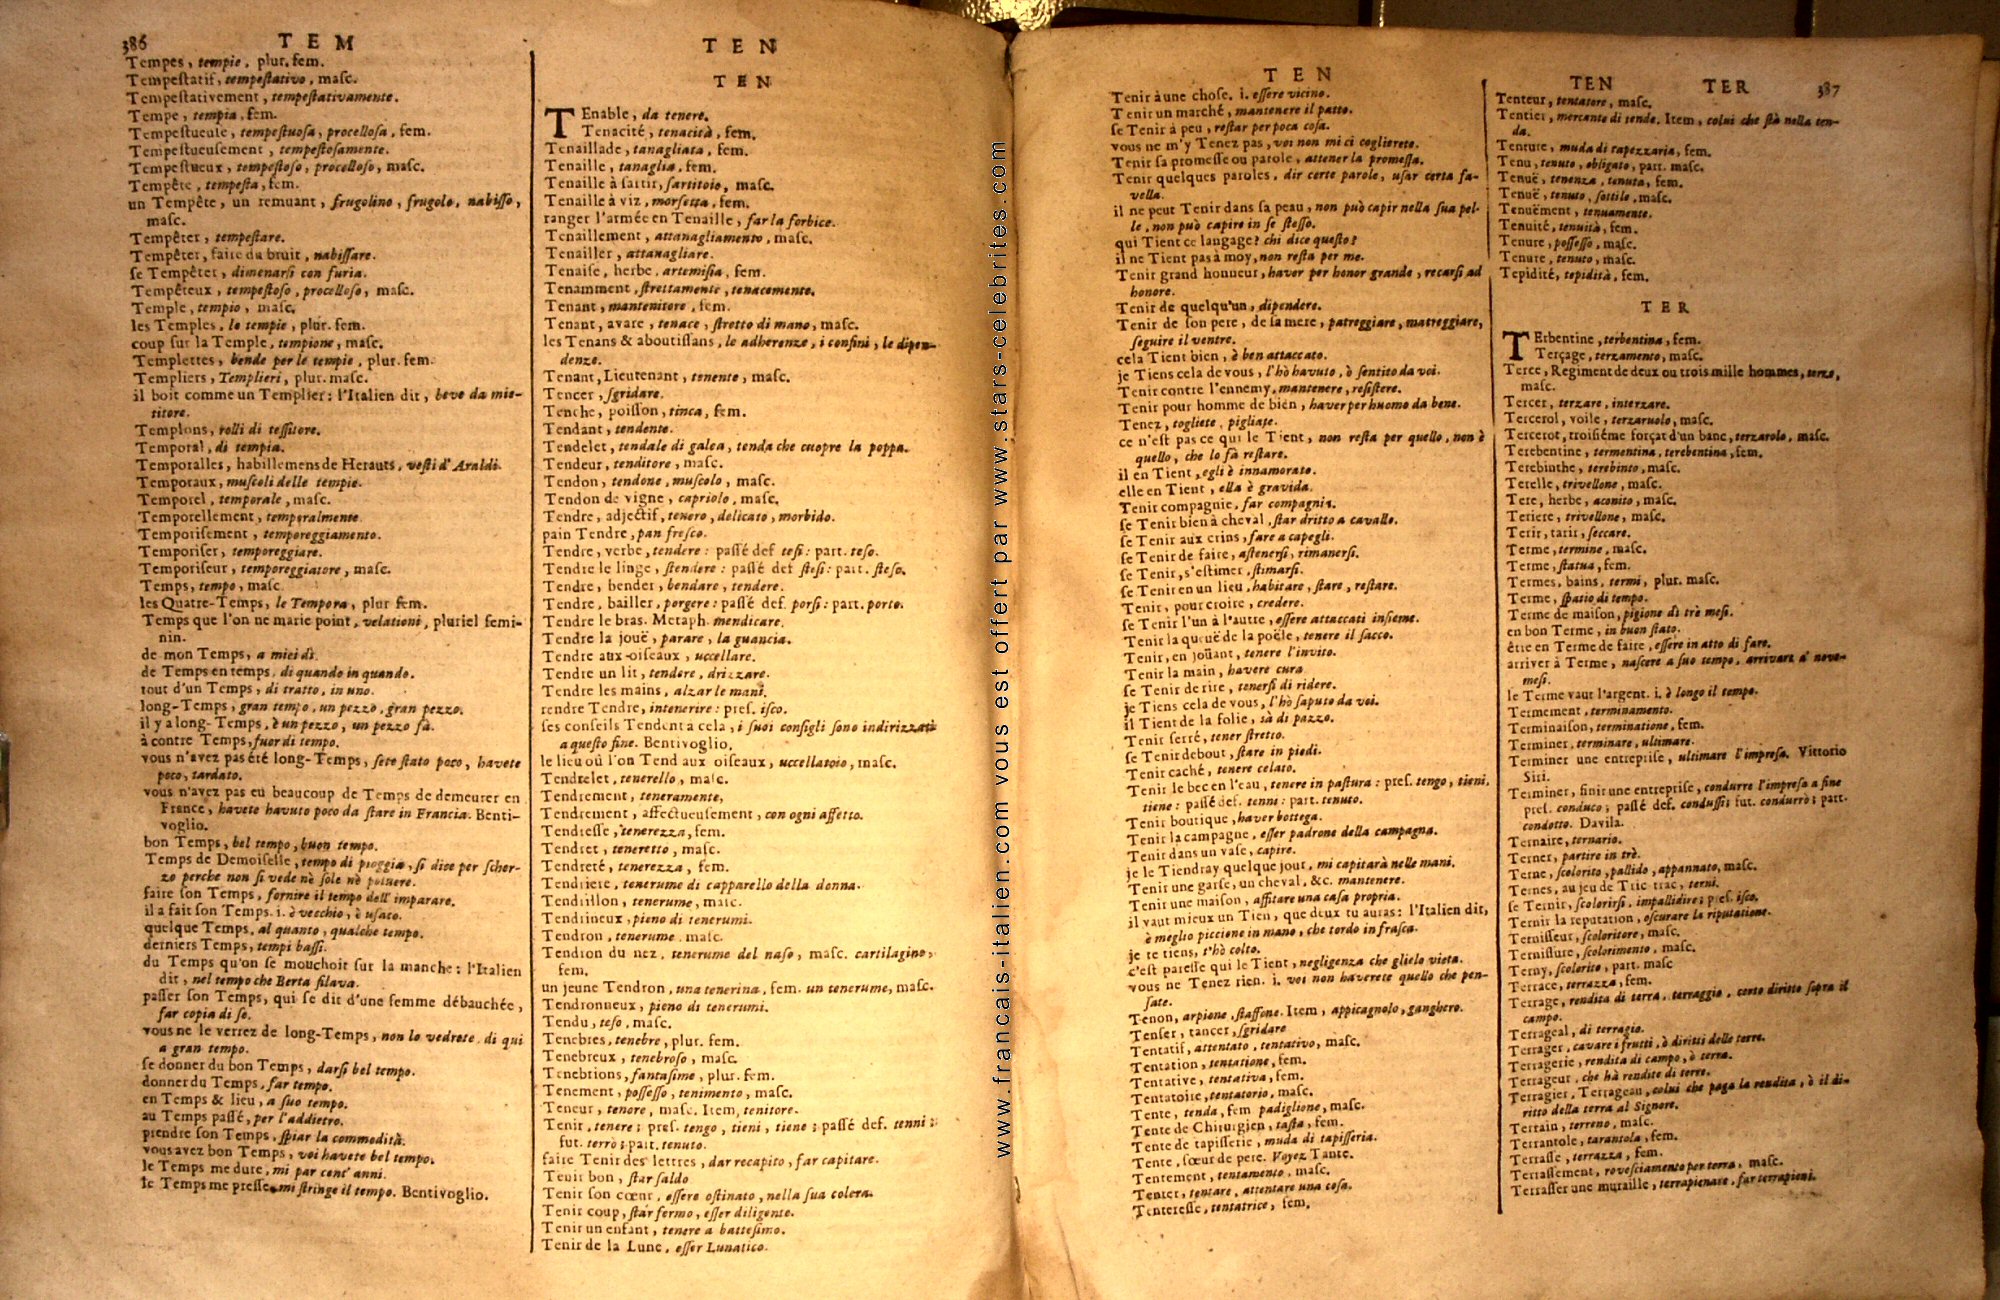 386
TEM
Tempes, tempie, plur. fem.
Tempeſtatif, tempeſtativo, maſc.
Tempeſtativement, tempeſtativamente.
Tempe, tempia, fem.
Tempeſtueuſe, tempeſtuoſa, procelloſa, fem.
Tempeſtueuſement, tempeſtoſamente.
Tempeſtueux, tempeſtoſo, procelloſo, maſc.
Tempête, tempeſta, fem.
un Tempête, un remuant, frugolino, frugolo, nabiſſo,
maſc.
Tempêter, tempeſtare.
Tempêter, faire du bruit, nabiſſare.
ſe Tempêter, dimenarſi con furia.
Tempêteux, tempeſtoſo, procelloſo, maſc.
Temple, tempio, maſc.
les Temples, le tempie, plur. fem.
coup ſur la Temple, tempione, maſc.
Templettes, bende per le tempie, plur. fem.
Templiers, Templieri, plur. maſc.
il boit comme un Templier: l'Italien dit, beve da mie-
titore.
Templons, rolli di teſſitore.
Temporal, di tempia.
Temporalles, habillemens de Herauts, veſti d'Araldi.
Temporaux, muſcoli delle tempie.
Temporel, temporale, maſc.
Temporellement, temporalmente.
Temporiſement, temporeggiamento.
Temporiſer, temporeggiare.
Temporiſeur, temporeggiatore, maſc.
Temps, tempo, maſc.
les Quatre-Temps, le Tempora, plur fem.
Temps que l'on ne marie point, velationi, pluriel femi-
nin.
de mon Temps, a miei dì.
de Temps en temps, di quando in quando.
tout d'un Temps, di tratto, in uno.
long-Temps, gran tempo, un pezzo, gran pezzo.
il y a long-Temps, è un pezzo, un pezzo fà.
à contre Temps, fuor di tempo.
vous n'avez pas été long-Temps, ſete ſtato poco, havete
poco, tardato.
vous n'avez pas eu beaucoup de Temps de demeurer en
France, havete havuto poco da ſtare in Francia. Benti-
voglio.
bon Temps, bel tempo, buon tempo.
Temps de Demoiſelle, tempo di pioggia, ſi dice per ſcher-
zo perche non ſi vede nè ſole nè polvere.
faire ſon Temps, fornire il tempo dell' imparare.
il a fait ſon Temps. i. è vecchio, è uſato.
quelque Temps, al quanto, qualche tempo.
derniers Temps, tempi baſſi.
du Temps qu'on ſe mouchoit ſur la manche: l'Italien
dit, nel tempo che Berta filava.
paſſer ſon Temps, qui ſe dit d'une femme débauchée,
far copia di ſe.
vous ne le verrez de long-Temps, non lo vedrete di qui
a gran tempo.
ſe donner du bon Temps, darſi bel tempo.
donner du Temps, far tempo.
en Temps & lieu, a ſuo tempo.
au Temps paſſé, per l'addietro.
prendre ſon Temps, ſpiar la commodità.
vous avez bon Temps, voi havete bel tempo.
le Temps me dure, mi par cent' anni.
le Temps me preſſe, mi ſtringe il tempo. Bentivoglio.
TEN
TEN
TEnable, da tenere.
Tenacité, tenacità, fem.
Tenaillade, tanagliata, fem.
Tenaille, tanaglia, fem.
Tenaille à ſartir, ſartitoio, maſc.
Tenaille à viz, morſetta, fem.
ranger l'armée en Tenaille, far la forbice.
Tenaillement, attanagliamento, maſc.
Tenailler, attanagliare.
Tenaiſe, herbe, artemiſia, fem.
Tenamment, ſtrettamente, tenacemente.
Tenant, mantenitore, fem.
Tenant, avare, tenace, ſtretto di mano, maſc.
les Tenans & aboutiſſans, le adherenze, i confini, le dipen-
denze.
Tenant, Lieutenant, tenente, maſc.
Tencer, ſgridare.
Tenche, poiſſon, tinca, fem.
Tendant, tendente.
Tendelet, tendale di galea, tenda che cuopre la poppa.
Tendeur, tenditore, maſc.
Tendon, tendone, muſcolo, maſc.
Tendon de vigne, capriolo, maſc.
Tendre, adjectif, tenero, delicato, morbido.
pain Tendre, pan freſco.
Tendre, verbe, tendere: paſſé def teſi: part. teſo.
Tendre le linge, ſtendere: paſſé def ſteſi: part. ſteſo.
Tendre, bender, bendare, tendere.
Tendre, bailler, porgere: paſſé def. porſi: part. porto.
Tendre le bras. Metaph. mendicare.
Tendre la jouë, parare, la guancia.
Tendre aux oiſeaux, uccellare.
Tendre un lit, tendere, drizzare.
Tendre les mains, alzar le mani.
rendre Tendre, intenerire: preſ. iſco.
ſes conſeils Tendent a cela, i ſuoi conſigli ſono indirizzati
a queſto fine. Bentivoglio.
le lieu où l'on Tend aux oiſeaux, uccellatoio, maſc.
Tendrelet, tenerello, maſc.
Tendrement, teneramente,
Tendrement, affectueuſement, con ogni affetto.
Tendreſſe, tenerezza, fem.
Tendret, teneretto, maſc.
Tendreté, tenerezza, fem.
Tendriere, tenerume di capparello della donna.
Tendrillon, tenerume, maſc.
Tendrineux, pieno di tenerumi.
Tendron, tenerume, maſc.
Tendron du nez, tenerume del naſo, maſc. cartilagine,
fem.
un jeune Tendron, una tenerina, fem. un tenerume, maſc.
Tendronneux, pieno di tenerumi.
Tendu, teſo, maſc.
Tenebres, tenebre, plur. fem.
Tenebreux, tenebroſo, maſc.
Tenebrions, fantaſime, plur. fem.
Tenement, poſſeſſo, tenimento, maſc.
Teneur, tenore, maſc. Item, tenitore.
Tenir, tenere; preſ. tengo, tieni, tiene; paſſé def. tenni;
fut. terrò; part. tenuto.
faire Tenir des lettres, dar recapito, far capitare.
Tenir bon, ſtar ſaldo
Tenir ſon cœur, eſſere oſtinato, nella ſua colera.
Tenir coup, ſtar fermo, eſſer diligente.
Tenir un enfant, tenere a batteſimo.
Tenir de la Lune, eſſer Lunatico.
www.francais-italien.com vous est offert par www.stars-celebrites.com
TEN
Tenir à une choſe. i. eſſere vicino.
Tenir un marché, mantenere il patto.
ſe Tenir à peu, reſtar per poca coſa.
vous ne m'y Tenez pas, voi non mi ci coglierete.
Tenir ſa promeſſe ou parole, attener la promeſſa.
Tenir quelques paroles, dir certe parole, uſar certa fa-
vella.
il ne peut Tenir dans ſa peau, non può capir nella ſua pel-
le, non può capire in ſe ſteſſo.
qui Tient ce langage? chi dice queſto?
il ne Tient pas à moy, non reſta per me.
Tenir grand honneur, haver per honor grande, recarſi ad
honore.
Tenir de quelqu'un, dipendere.
Tenir de ſon pere, de ſa mere, patreggiare, matreggiare,
ſeguire il ventre.
cela Tient bien, è ben attaccato.
je Tiens cela de vous, l'hò havuto, ò ſentito da voi.
Tenir contre l'ennemy, mantenere, reſiſtere.
Tenir pour homme de bien, haver per huomo da bene.
Tenez, togliete, pigliate.
ce n'eſt pas ce qui le Tient, non reſta per quello, non è
quello, che lo fà reſtare.
il en Tient, egli è innamorato.
elle en Tient, ella è gravida.
Tenir compagnie, far compagnia.
ſe Tenir bien à cheval, ſtar dritto a cavallo.
ſe Tenir aux crins, fare a capegli.
ſe Tenir de faire, aſtenerſi, rimanerſi.
ſe Tenir, s'eſtimer, ſtimarſi.
ſe Tenir en un lieu, habitare, ſtare, reſtare.
Tenir, pour croire, credere.
ſe Tenir l'un à l'autre, eſſere attaccati inſieme.
Tenir la queuë de la poële, tenere il ſacco.
Tenir, en joüant, tenere l'invito.
Tenir la main, havere cura
ſe Tenir de rire, tenerſi di ridere.
je Tiens cela de vous, l'hò ſaputo da voi.
il Tient de la folie, sà di pazzo.
Tenir ſerré, tener ſtretto.
ſe Tenir debout, ſtare in piedi.
Tenir caché, tenere celato.
Tenir le bec en l'eau, tenere in paſtura: preſ. tengo, tieni,
tiene: paſſé def. tenni: part. tenuto.
Tenir boutique, haver bottega.
Tenir la campagne, eſſer padrone della campagna.
Tenir dans un vaſe, capire.
je le Tiendray quelque jour, mi capitarà nelle mani.
Tenir une garſe, un cheval, &c. mantenere.
Tenir une maiſon, affitare una caſa propria.
il vaut mieux un Tien, que deux tu auras: l'Italien dit,
è meglio piccione in mano, che tordo in fraſca.
je te tiens, t'hò colto.
c'eſt pareſſe qui le Tient, negligenza che glielo vieta.
vous ne Tenez rien. i. voi non haverete quello che pen-
ſate.
Tenon, arpione, ſtaffone. Item, appicagnolo, ganghero.
Tenſer, tancer, ſgridare
Tentatif, attentato, tentativo, maſc.
Tentation, tentatione, fem.
Tentative, tentativa, fem.
Tentatoire, tentatorio, maſc.
Tente, tenda, fem padiglione, maſc.
Tente de Chirurgien, taſta, fem.
Tente de tapiſſerie, muda di tapiſſeria.
Tente, ſœur de pere. Voyez Tante.
Tentement, tentamento, maſc.
Tenter, tentare, attentare una coſa.
Tentereſſe, tentatrice, fem.
TEN
TER
387
Tenteur, tentatore, maſc.
Tentier, mercante di tende. Item, colui che ſtà nella ten-
da.
Tenture, muda di tapezzaria, fem.
Tenu, tenuto, obligato, part. maſc.
Tenuë, tenenza, tenuta, fem.
Tenuë, tenuto, ſottile, maſc.
Tenuëment, tenuamente.
Tenuité, tenuità, fem.
Tenure, poſſeſſo, maſc.
Tenure, tenuto, maſc.
Tepidité, tepidità, fem.
TER
TErbentine, terbentina, fem.
Terçage, terzamento, maſc.
Terce, Regiment de deux ou trois mille hommes, terzo,
maſc.
Tercer, terzare, interzare.
Tercerol, voile, terzaruolo, maſc.
Tercerot, troiſiéme forçat d'un banc, terzarolo, maſc.
Terebentine, termentina, terebentina, fem.
Terebinthe, terebinto, maſc.
Terelle, trivellone, maſc.
Tere, herbe, aconito, maſc.
Teriere, trivellone, maſc.
Terir, tarir, ſeccare.
Terme, termine, maſc.
Terme, ſtatua, fem.
Termes, bains, termi, plur. maſc.
Terme, ſpatio di tempo.
Terme de maiſon, pigione di trè meſi.
en bon Terme, in buon ſtato.
être en Terme de faire, eſſere in atto di fare.
arriver à Terme, naſcere a ſuo tempo, arrivare a' nove
meſi.
le Terme vaut l'argent. i. è longo il tempo.
Termement, terminamento.
Terminaiſon, terminatione, fem.
Terminer, terminare, ultimare.
Terminer une entrepriſe, ultimare l'impreſa. Vittorio
Siri.
Terminer, finir une entrepriſe, condurre l'impreſa a fine
preſ. conduco; paſſé def. conduſſi; fut. condurrò; part.
condotto. Davila.
Ternaire, ternario.
Terner, partire in trè.
Terne, ſcolorito, pallido, appannato, maſc.
Ternes, au jeu de Tric trac, terni.
ſe Ternir, ſcolorirſi, impallidire; preſ. iſco.
Ternir la reputation, oſcurare la riputatione.
Terniſſeur, ſcoloritore, maſc.
Terniſſure, ſcolorimento, maſc.
Terny, ſcolorito, part. maſc
Terrace, terrazza, fem.
Terrage, rendita di terra, terraggio, certo diritto ſopra il
campo.
Terrageal, di terragio.
Terrager, cavare i frutti, ò diritti delle terre.
Terragerie, rendita di campo, ò terra.
Terrageur, che hà rendite di terre.
Terragier, Terrageau, colui che paga la rendita, ò il di-
ritto della terra al Signore.
Terrain, terreno, maſc.
Terrantole, tarantola, fem.
Terraſſe, terrazza, fem.
Terraſſement, roveſciamento per terra, maſc.
Terraſſer une muraille, terrapienare, far terrapieni.